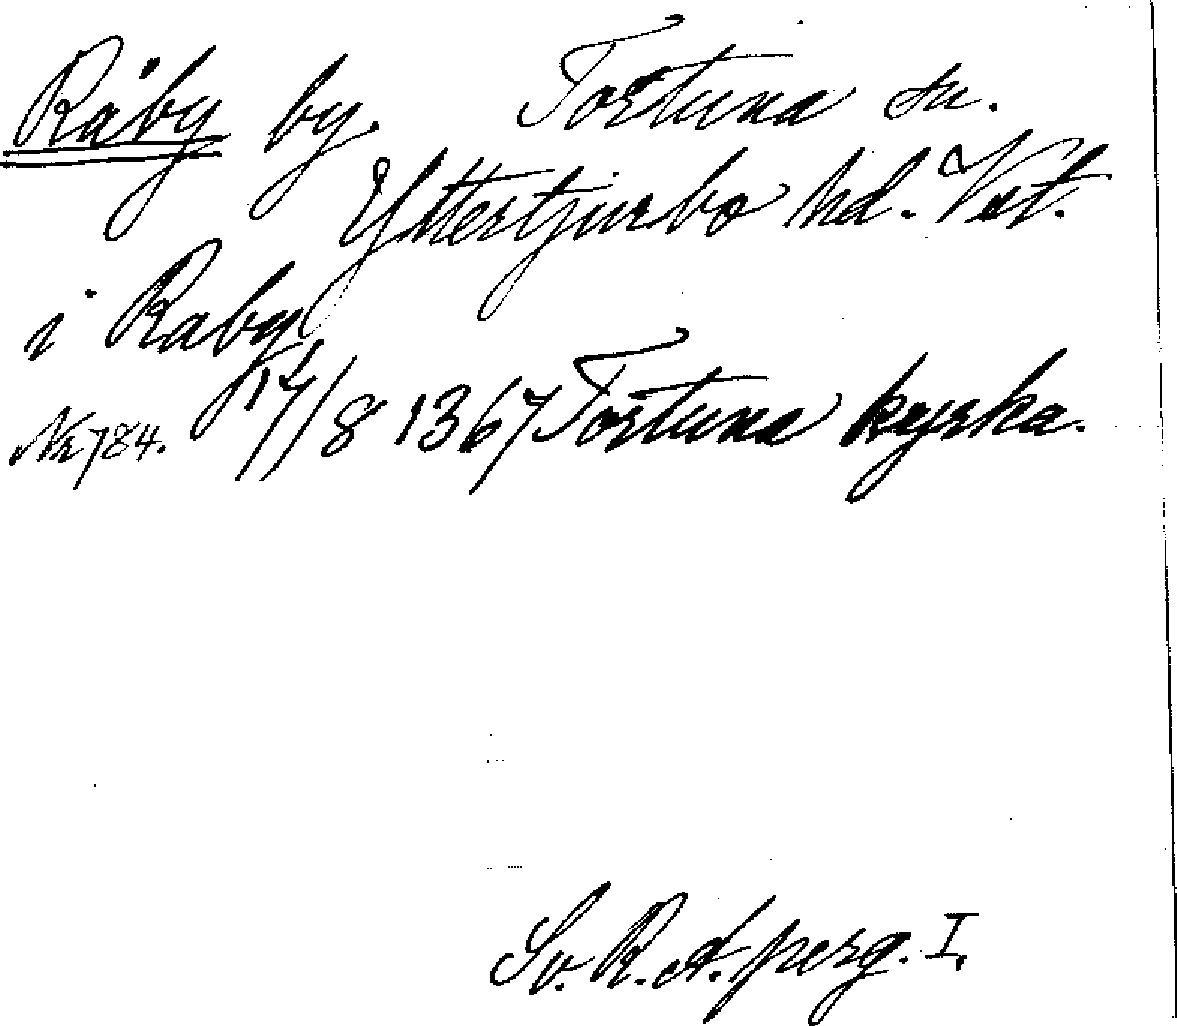 Råby by. Tortuna sn.
Yttertjurbo hd. Vstm.
i Raby
Nr 784. 17/8 1367 Tortuna kyrka.
Sv. R. A. perg. I.